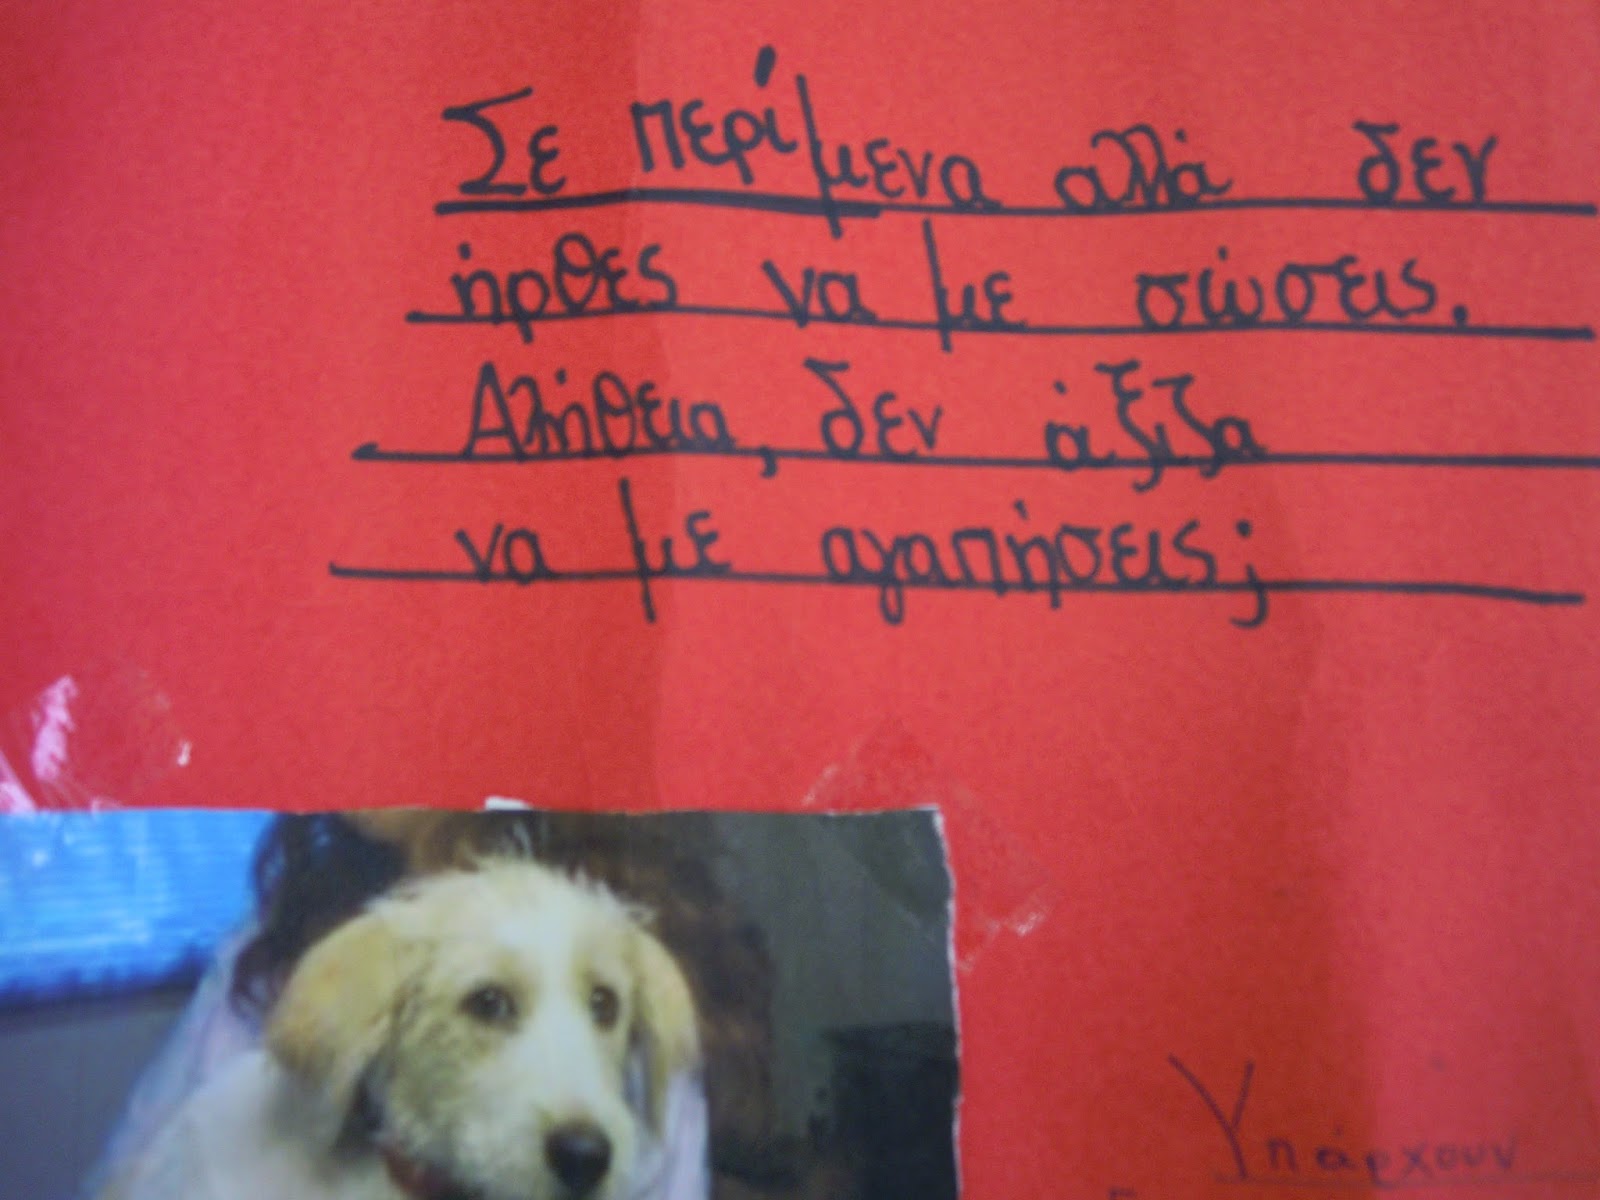 Σε περίμενα αλλά δεν
ήρθες να με σώσεις.
Αλήθεια, δεν άξιζα
να με αγαπήσεις;
Υπάρχουν